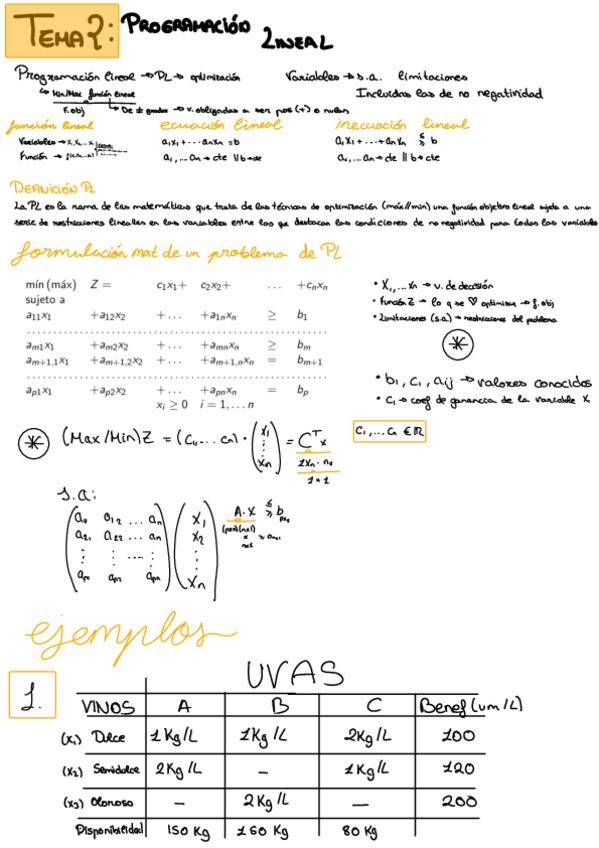 TEMA 2: PROGRAMACIÓN LINEAL
Programación lineal → PL → optimización
Variables → s.a. limitaciones
Min/Max función lineal
Incluidas las de no negatividad
F.obj
v. obligadas a ser pos (+) o nulas
función lineal
ecuación lineal
inecuación lineal
Variables → x₁, x₂, ... x
a₁x₁ + ... anxn = b
a₁x₁ + ... + anxn ≤ ≥ b
Función →
a₁, ... an → cte || b → cte
a₁, ... an → cte || b → cte
DEFINICIÓN PL
La PL es la rama de las matemáticas que trata de las técnicas de optimización (máx//min) una función objetivo lineal sujeta a una
serie de restricciones lineales en las variables entre las que destacan las condiciones de no negatividad para todas las variables
formulación mat de un problema de PL
mín (máx) Z = c₁x₁+ c₂x₂+ ... +cₙxₙ
sujeto a
a₁₁x₁ +a₁₂x₂ +... +a₁ₙxₙ ≥ b₁
am1x₁ +am2x₂ +... +amnxₙ ≥ bm
am+1,1x₁ +am+1,2x₂ +... +am+1,nxₙ = bm+1
ap1x₁ +ap2x₂ +... +apnxₙ = bp
xᵢ ≥ 0 i = 1, ... n
• X₁, ... Xn → v. de decisión
• Función Z → lo q se ♡ optimizar → f. obj
• Limitaciones (s.a.) → restricciones del problema
*
• b₁, c₁, aij → valores conocidos
• C₁ → coef de ganancia de la variable X₁
* (Max/Min) Z = (C₁, ... Cn) · (x₁ ⋮ xn) = Cᵀx
1xn · nx1
1x1
C₁, ... Cn ∈ ℝ
s.a:
a₁₁ a₁₂ ... a₁n
a₂₁ a₂₂ ... a₂n
⋮ ⋮ ... ⋮
ap₁ ap₂ apn
X₁
X₂
⋮
Xn
A·X ≤ ≥ b
ejemplos
1.
UVAS
VINOS A B C Benef (um/L)
(x₁) Dulce 1 Kg/L 1Kg/L 2Kg/L 100
(x₂) Semidulce 2Kg/L — 1Kg/L 120
(x₃) Oloroso — 2Kg/L — 200
Disponibilidad 150 Kg 150 Kg 80 Kg